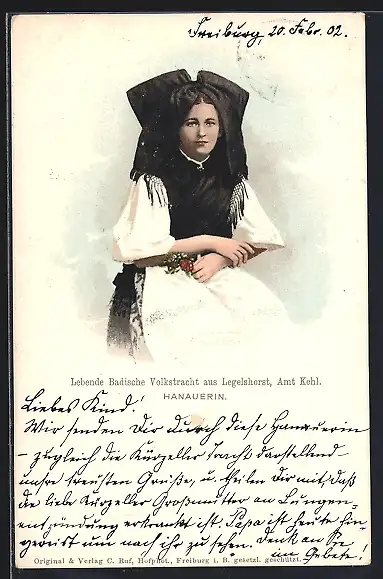 Freiburg, 20. Febr. 02.
Lebende Badische Volkstracht aus Legelshorst, Amt Kehl.
HANAUERIN.
Liebes Kind!
Wir senden Dir durch diese Hanauerin
– zugleich die Kürzeller Tracht darstellend –
unsre treusten Grüße, u. theilen Dir mit, daß
die liebe Kürzeller Großmutter an Lungen-
entzündung erkrankt ist. Papa ist heute hin-
gereist um nach ihr zu sehen. Denk an Sie
im Gebete!
Original & Verlag C. Ruf, Hofphot., Freiburg i. B. gesetzl. geschützt.